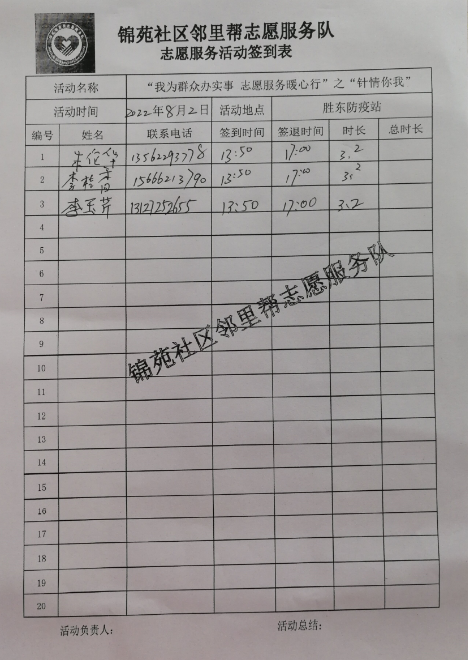 锦苑社区邻里帮志愿服务队
志愿服务活动签到表
活动名称 “我为群众办实事 志愿服务暖心行”之“针情你我”
活动时间 2022年8月2日 活动地点 胜东防疫站
编号 姓名 联系电话 签到时间 签退时间 时长 总时长
1 朱伦华 13562293778 13:50 17:00 3.2
2 李桂香 15666213790 13:50 17:00 3.2
3 李玉芹 13127252655 13:50 17:00 3.2
4
5
6
7
8
9
10
11
12
13
14
15
16
17
18
19
20
锦苑社区邻里帮志愿服务队
活动负责人: 活动总结: